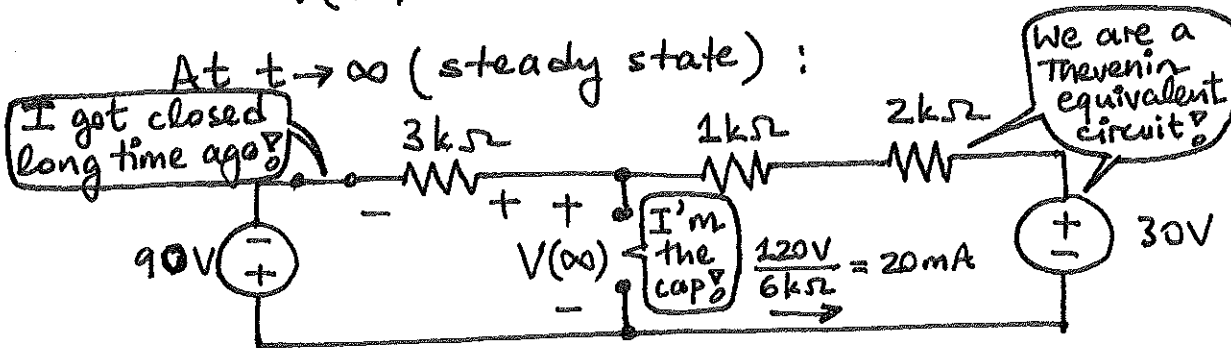 At t→∞ (steady state) :
I got closed
long time ago!
3kΩ
1kΩ
2kΩ
We are a
Thevenin
equivalent
circuit!
90V
-
+
-
+
+
V(∞)
-
I'm
the
cap!
120V
6kΩ
= 20mA
+
-
30V